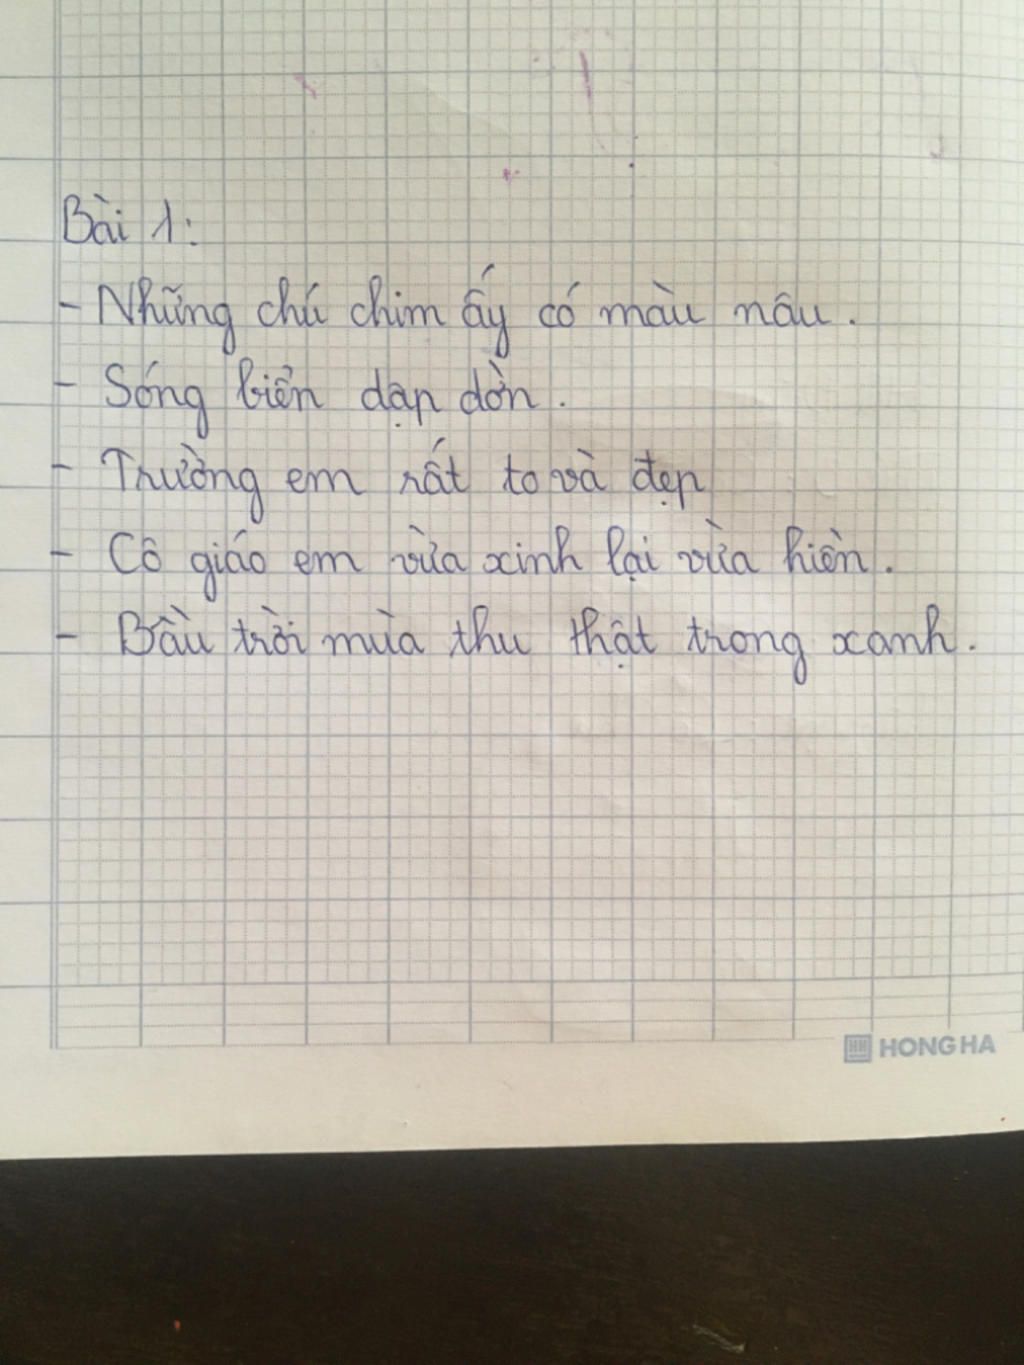 Bài 1:
- Những chú chim ấy có màu nâu.
- Sóng biển dạp dờn.
- Trường em rất to và đẹp
- Cô giáo em vừa xinh lại vừa hiền.
- Bầu trời mùa thu thật trong xanh.
HONG HA